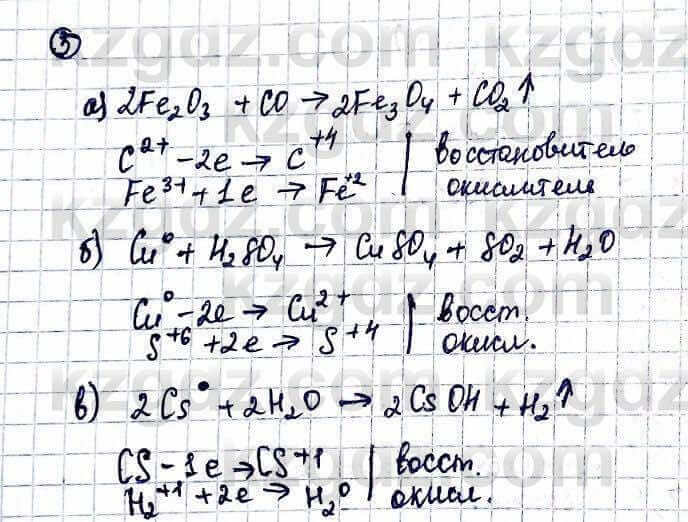 ③
а) 2Fe₂O₃ + CO → 2Fe₃O₄ + CO₂↑
C²⁺ - 2e → C⁺⁴ | восстановитель
Fe³⁺ + 1e → Fe⁺² | окислитель
б) Cu⁰ + H₂SO₄ → CuSO₄ + SO₂ + H₂O
Cu⁰ - 2e → Cu²⁺ | восст.
S⁺⁶ + 2e → S⁺⁴ | окисл.
в) 2Cs⁰ + 2H₂O → 2CsOH + H₂↑
CS - 1e → CS⁺¹ | восст.
H₂⁺¹ + 2e → H₂⁰ | окисл.
kzgdz.com